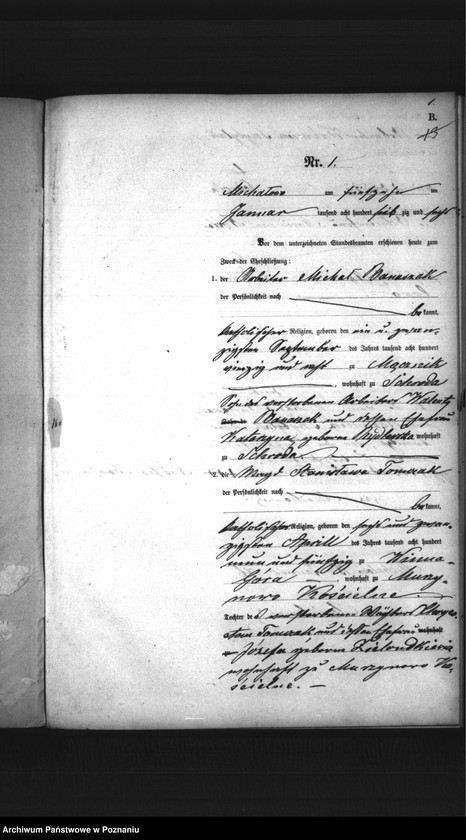 1
B.
Nr. 1.
Michalowo am fünfzehn ten
Januar tausend acht hundert sieb zig und sechs
Vor dem unterzeichneten Standesbeamten erschienen heute zum
Zweck der Eheschließung:
1. der Arbeiter Michal Banaszak
der Persönlichkeit nach
be kannt,
katholischer Religion, geboren den ein u. zwan-
zigsten September des Jahres tausend acht hundert
vierzig und acht zu Mącznik
, wohnhaft zu Schroda
Sohn des verstorbenen Arbeiters
Banaszak und dessen Ehefrau
Katarzyna geborene wohnhaft
zu Schroda
Magd Stanisława Tomczak
der Persönlichkeit nach
be kannt,
katholischer Religion, geboren den sechs und zwan-
zigsten Aprill des Jahres tausend acht hundert
neun und fünfzig zu Winna-
Góra wohnhaft zu Murzy-
nowo Kościelne
Tochter des verstorbenen
Tomczak und dessen Ehefrau wohnhaft
Józefa geborene
wohnhaft zu Murzynowo Ko-
ścielne. –
Archiwum Państwowe w Poznaniu